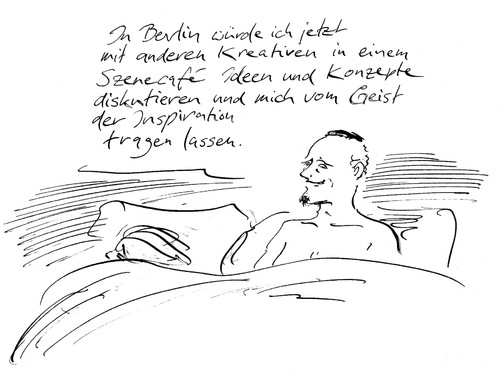 In Berlin würde ich jetzt
mit anderen Kreativen in einem
Szenecafé Ideen und Konzepte
diskutieren und mich vom Geist
der Inspiration
tragen lassen.